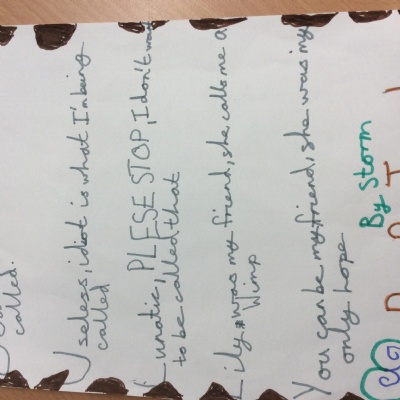 called.
Useless, idiot is what I'm being
called
Lunatic, PLESE STOP, I don't
to be called that
Lily was my friend, she calls me a
Wimp
You can be my friend, she was my
only hope
By Storm